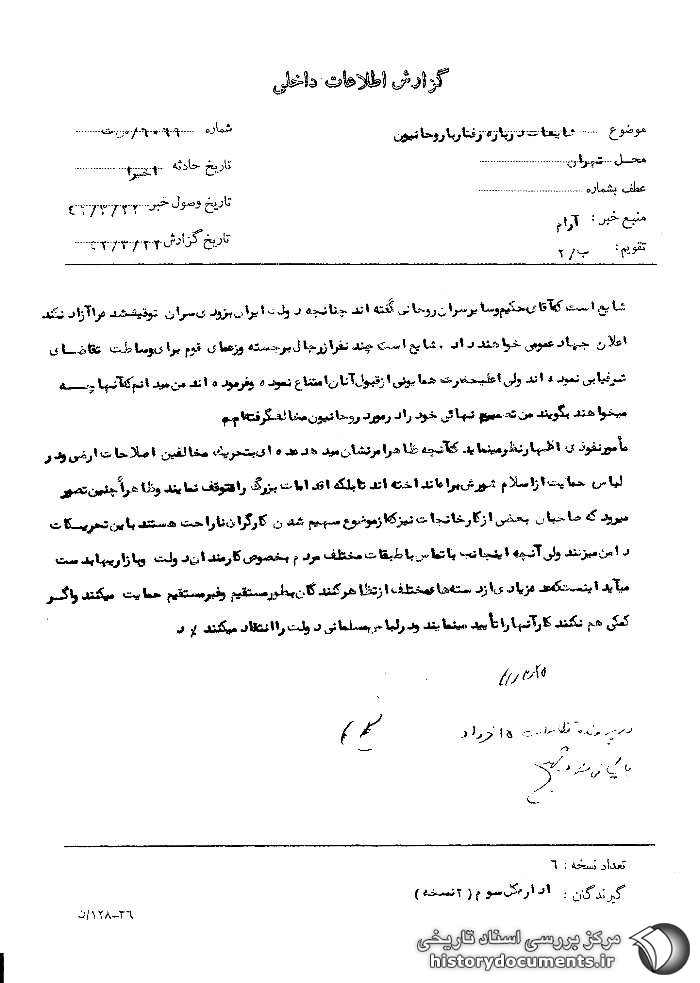 گزارش اطلاعات داخلی
موضوع شایعات درباره رفتار با روحانیون
شماره ۶۰۹۹/س ت
محل تهران
تاریخ حادثه اخیرا
عطف بشماره
تاریخ وصول خبر ۴۲/۳/۲۲
منبع خبر: آرام
تاریخ گزارش ۴۲/۳/۲۳
تقویم: ب/۲
شایع است که آقای حکیم و سایر سران روحانی گفته اند چنانچه دولت ایران بزودی سران توقیف شده را آزاد نکند
اعلان جهاد عمومی خواهند داد. شایع است چند نفر از رجال برجسته و زعمای قوم برای وساطت تقاضای
شرفیابی نموده اند ولی اعلیحضرت همایونی از قبول آنان امتناع نموده و فرموده اند من میدانم که آنها چه
میخواهند بگویند من تصمیم نهائی خود را در مورد روحانیون مخالف گرفته ام
مأمور نفوذی اظهار نظر مینماید که آنچه ظاهر امر نشان میدهد عده ای بتحریک مخالفین اصلاحات ارضی و در
لباس حمایت از اسلام شورش براه انداخته اند تا بلکه اقدامات بزرگ را متوقف نمایند و ظاهراً چنین تصور
میرود که صاحبان بعضی از کارخانجات نیز که از موضوع سهیم شدن کارگران ناراحت هستند باین تحریکات
دامن میزنند ولی آنچه اینجانب با تماس با طبقات مختلف مردم بخصوص کارمندان دولت و بازاریها بدست
میآید اینست که عده زیادی از دسته های مختلف از تظاهر کنندگان بطور مستقیم و غیر مستقیم حمایت میکنند و اگر
کمکی هم نکنند کار آنها را تأیید مینمایند و در لباس مسلمانی دولت را انتقاد میکنند / د
در پرونده تظاهرات ۱۵ خرداد
بایگانی شود
تعداد نسخه: ۶
گیرندگان: اداره کل سوم (۲ نسخه)
۳۶-۱۲۸/ن
مرکز بررسی اسناد تاریخی
historydocuments.ir